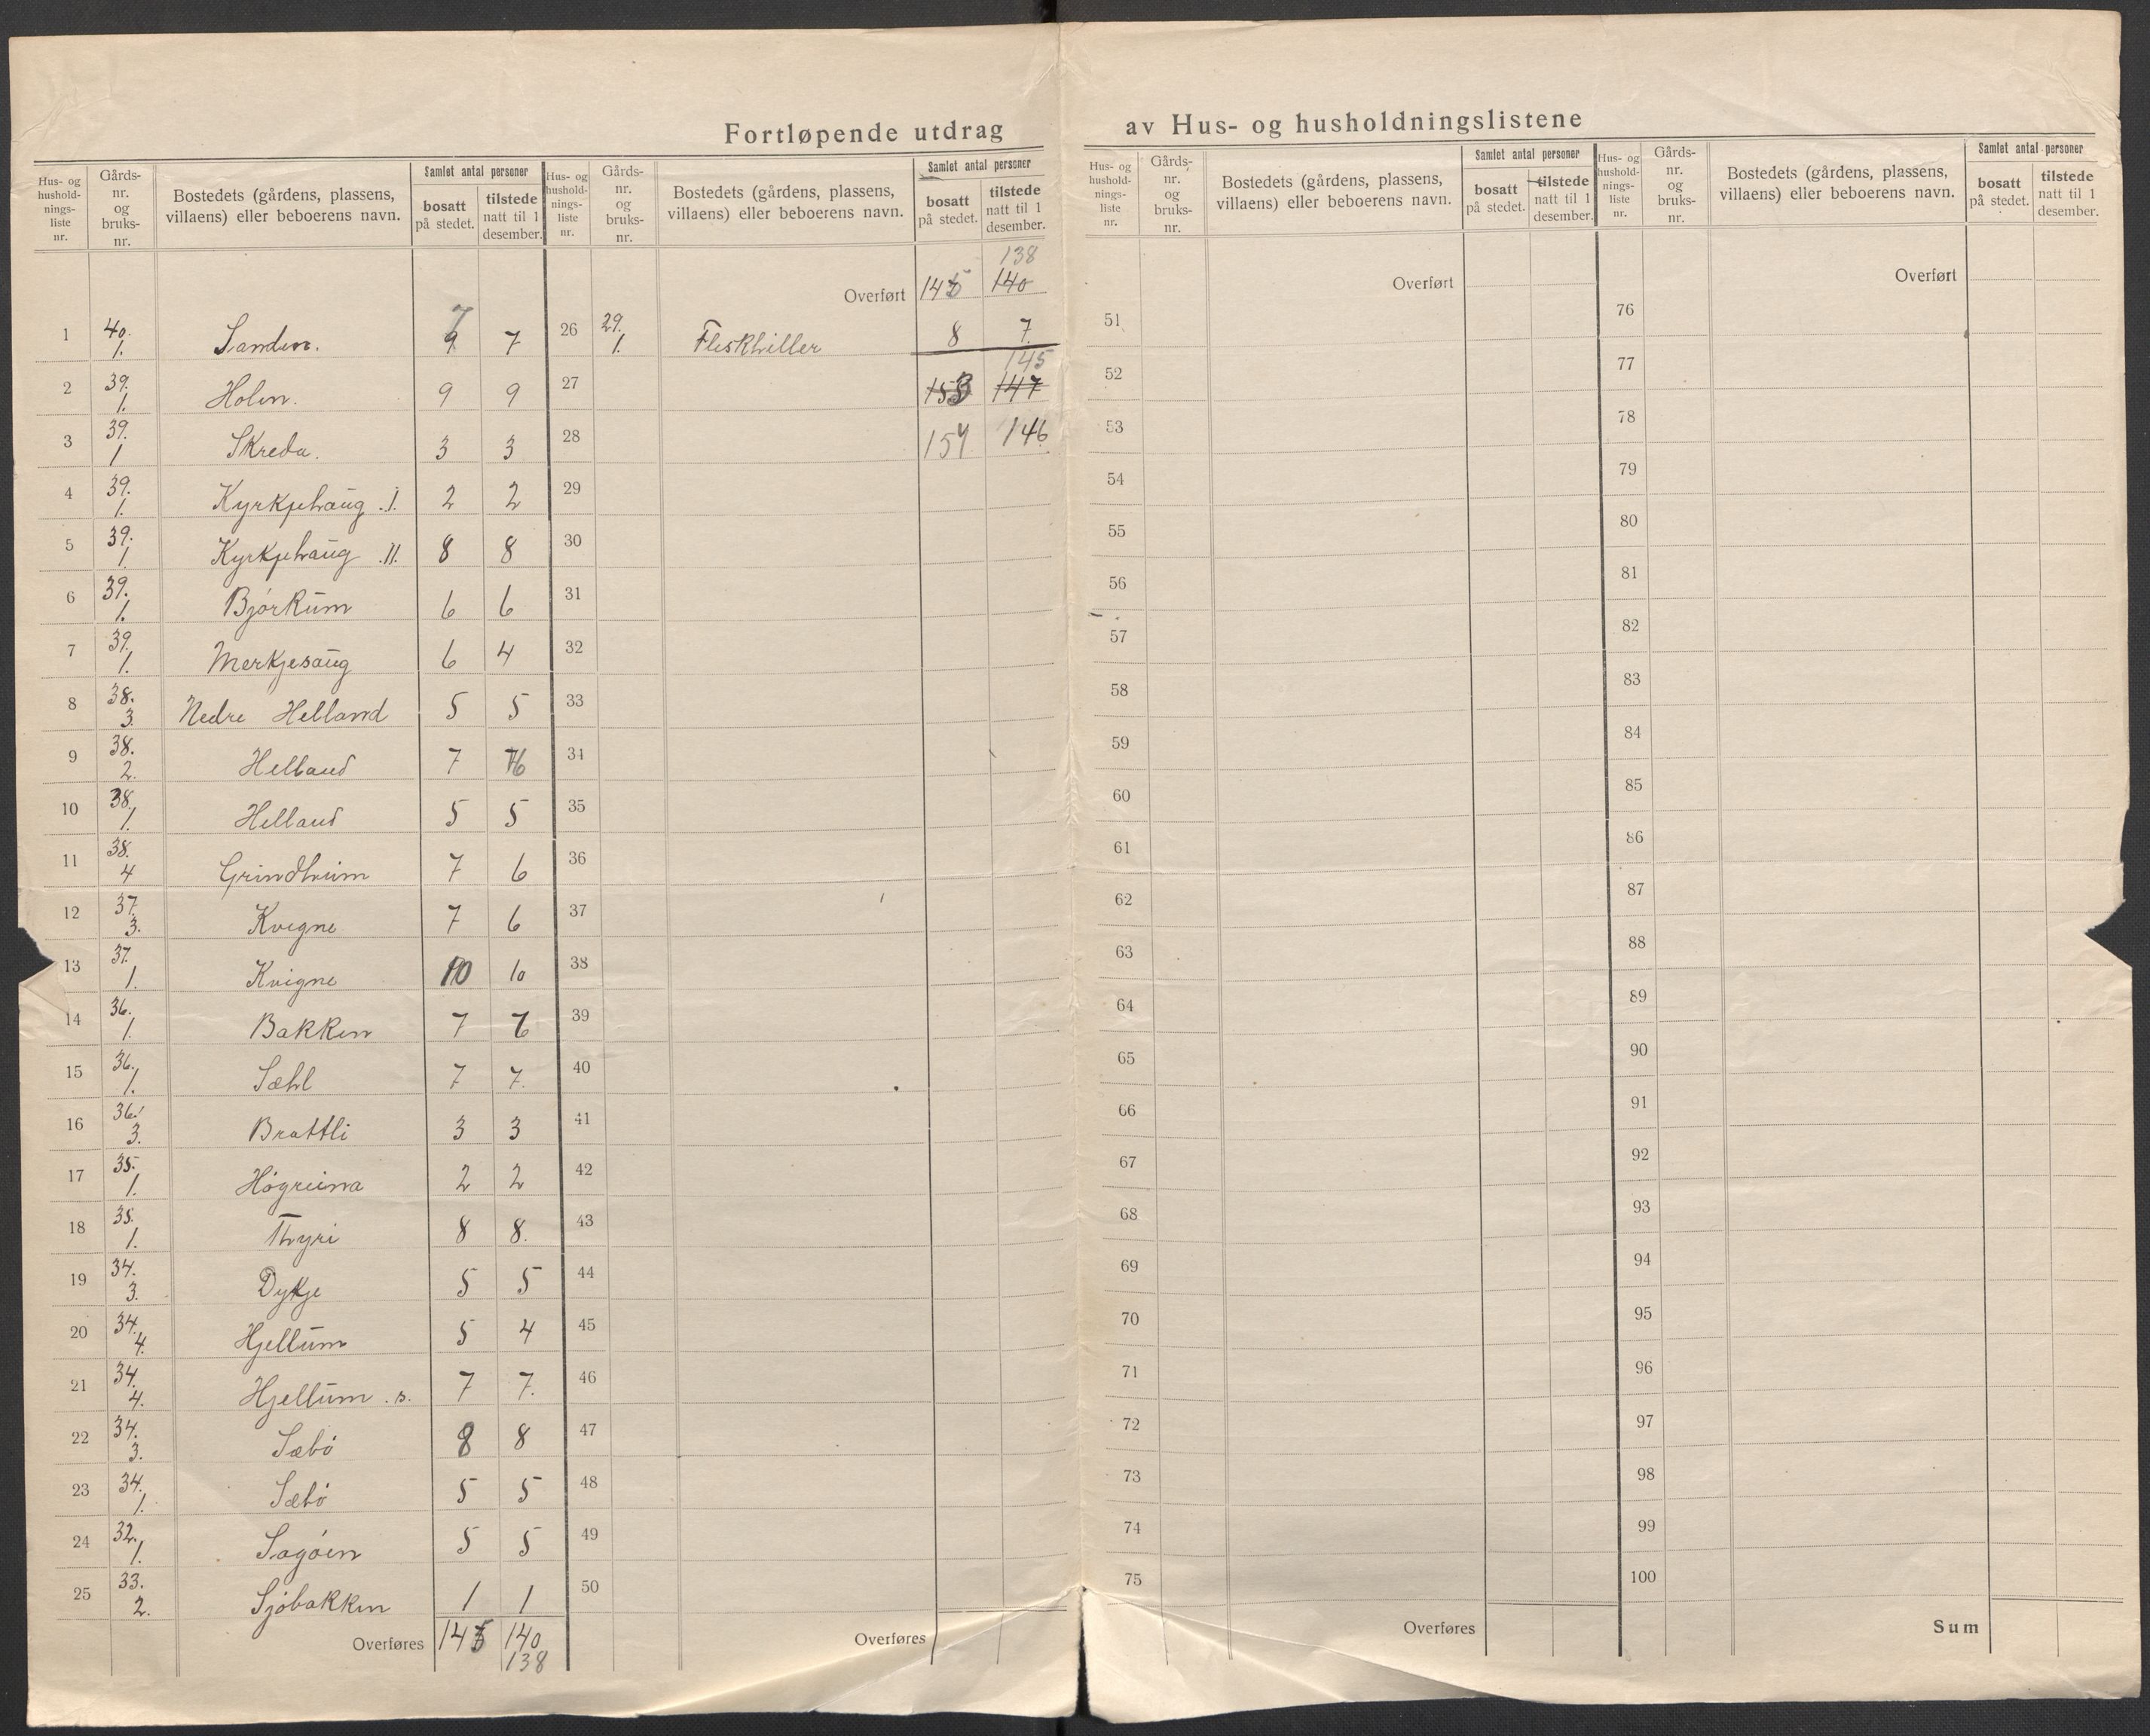 Fortløpende utdrag av Hus- og husholdningslistene
Hus- og hushold-nings-liste nr. Gårds-nr. og bruks-nr. Bostedets (gårdens, plassens, villaens) eller beboerens navn. Samlet antal personer bosatt på stedet. tilstede natt til 1 desember.
Hus- og hushold-nings-liste nr. Gårds-nr. og bruks-nr. Bostedets (gårdens, plassens, villaens) eller beboerens navn. Samlet antal personer bosatt på stedet. tilstede natt til 1 desember.
Hus- og hushold-nings-liste nr. Gårds-nr. og bruks-nr. Bostedets (gårdens, plassens, villaens) eller beboerens navn. Samlet antal personer bosatt på stedet. tilstede natt til 1 desember.
Hus- og hushold-nings-liste nr. Gårds-nr. og bruks-nr. Bostedets (gårdens, plassens, villaens) eller beboerens navn. Samlet antal personer bosatt på stedet. tilstede natt til 1 desember.
1 40. 1. Sanden. 7 9 7
2 39. 1. Holen. 9 9
3 39. 1 Skreda. 3 3
4 39. 1. Kyrkjehaug .I. 2 2
5 39. 1. Kyrkjehaug .II. 8 8
6 39. 1. Bjørkum 6 6
7 39. 1. Merkjesaug 6 4
8 38. 3. Nedre Helland 5 5
9 38. 2. Helland 7 6
10 38. 1. Helland 5 5
11 38. 4 Grindheim 7 6
12 37. 3. Kvigne 7 6
13 37. 1. Kvigne 10 10
14 36. 1. Bakken 7
15 36. 1. Sæhl 7 7.
16 36. 3. Brattli 3 3
17 35. 1. Høgreina 2 2
18 35. 1. Thyri 8 8.
19 34. 3. Dykje 5 5
20 34. 4. Hjellum 5 4
21 34. 4. Hjellum .s. 7 7.
22 34. 3. Sæbø 8 8
23 34. 1. Sæbø 5 5
24 32. 1. Sagøen 5 5
25 33. 2. Sjøbakken 1 1
Overføres 140
138
138
Overført 140
26 29. 1. Fleskhiller 8 7.
145
27 153 147
28 157 146
29
30
31
32
33
34
35
36
37
38
39
40
41
42
43
44
45
46
47
48
49
50
Overføres
Overført
51
52
53
54
55
56
57
58
59
60
61
62
63
64
65
66
67
68
69
70
71
72
73
74
75
Overføres
Overført
76
77
78
79
80
81
82
83
84
85
86
87
88
89
90
91
92
93
94
95
96
97
98
99
100
Sum